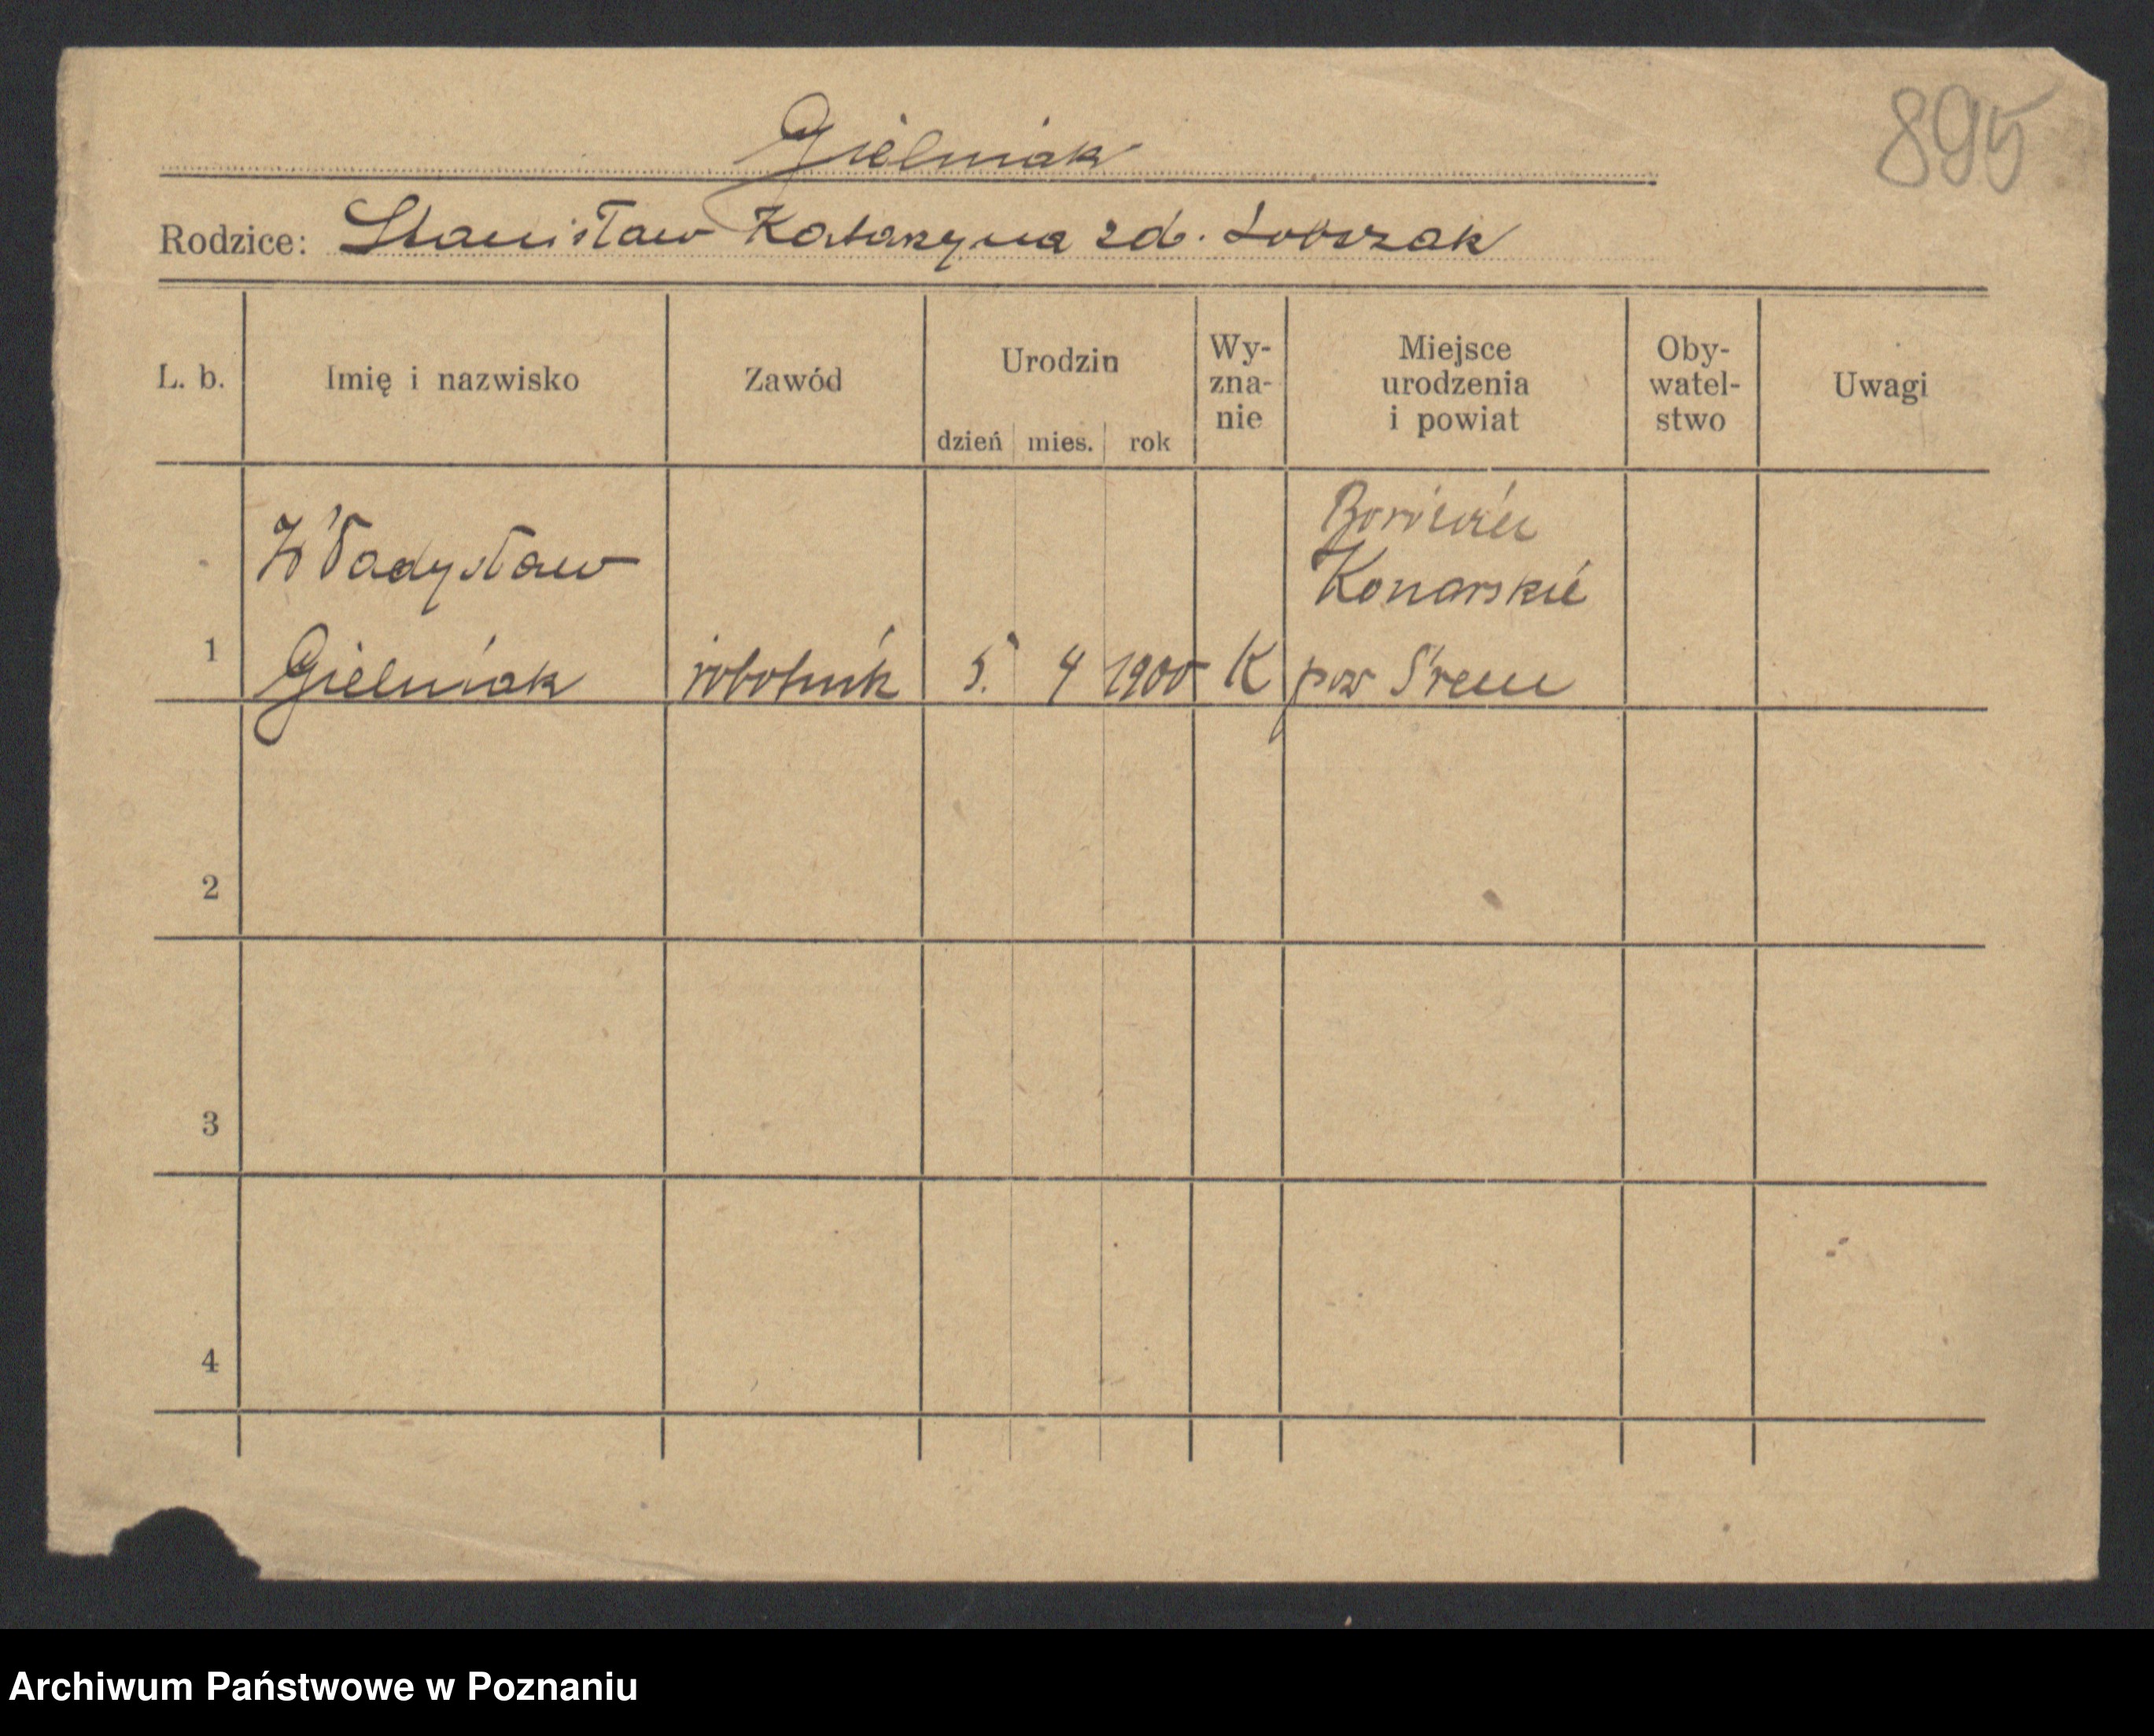 895
Gielniak
Rodzice: Stanisław Katarzyna zd.
L. b.
Imię i nazwisko
Zawód
Urodzin
dzień mies. rok
Wy-
zna-
nie
Miejsce
urodzenia
i powiat
Oby-
watel-
stwo
Uwagi
Władysław
Konarskie
1 Gielniak robotnik 5. 4 1900 K pow Śrem
2
3
4
Archiwum Państwowe w Poznaniu